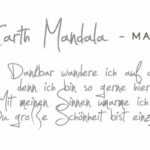 Earth Mandala - MA
Dankbar wandere ich auf d
denn ich bin so gerne hier
Mit meinen Sinnen umarme ich
Du große Schönheit bist einz